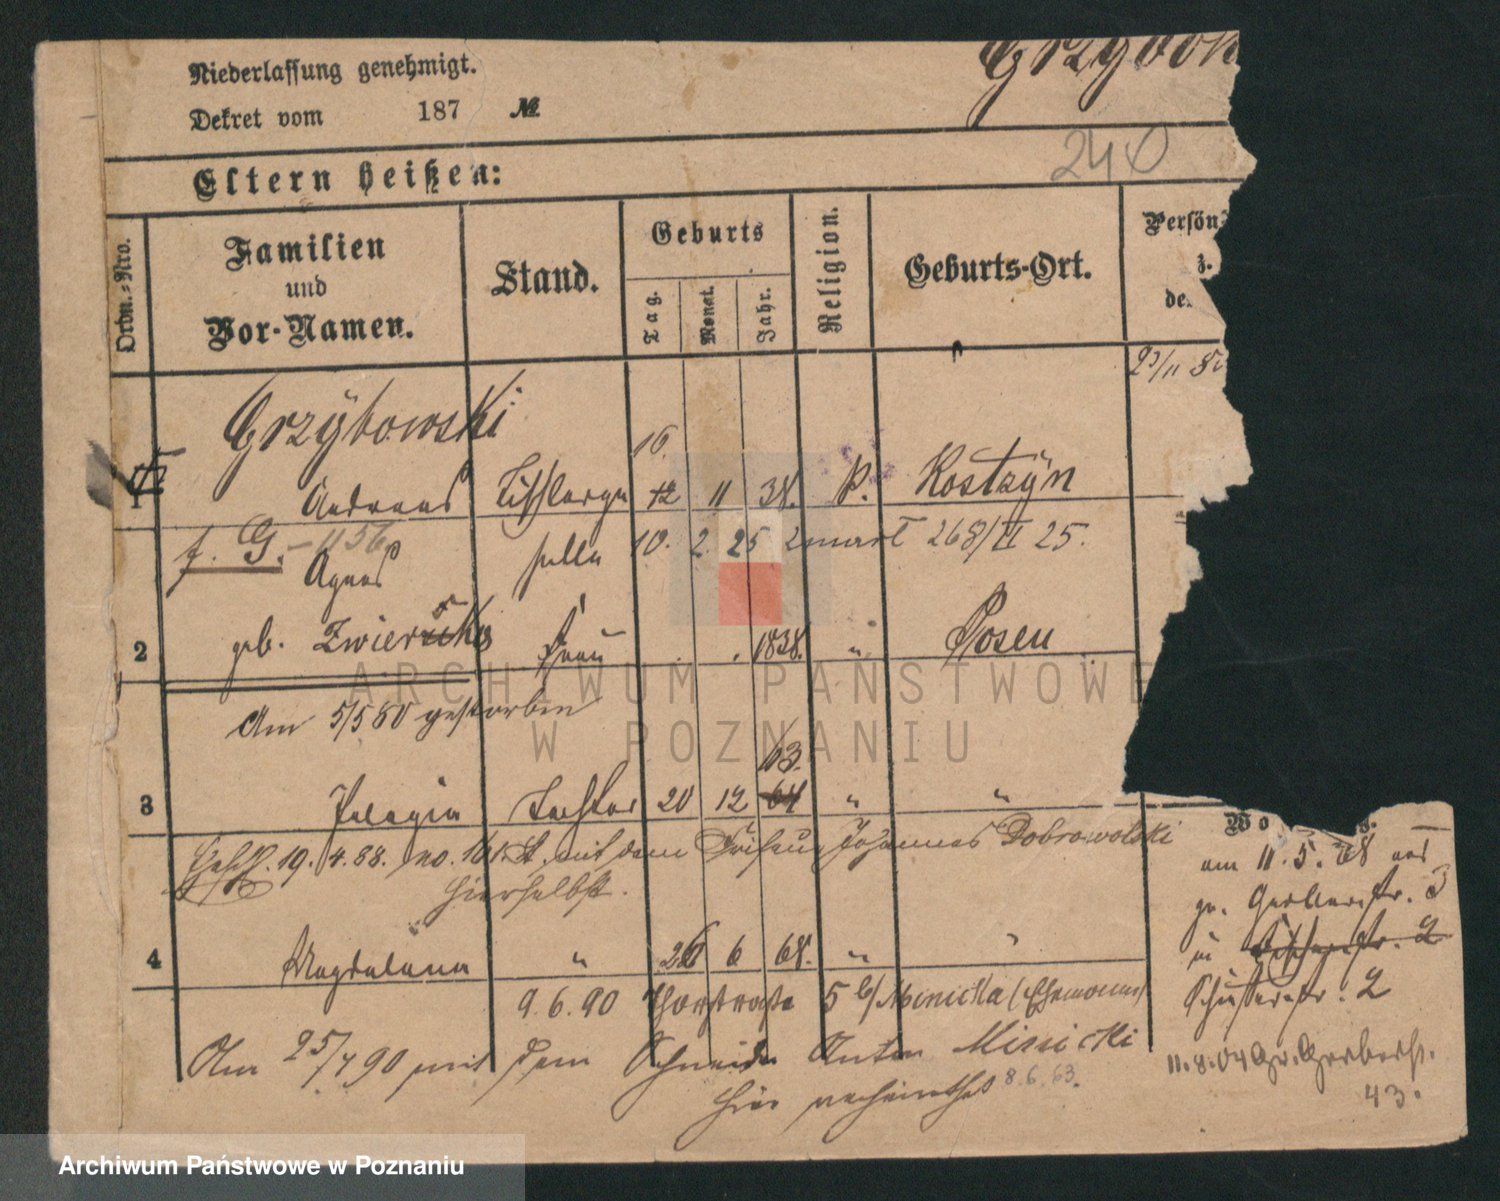 Grzybow
Niederlassung genehmigt.
Dekret vom 187 №
240
Eltern heißen:
Ordn.-Nro.
Familien
und
Vor-Namen.
Stand.
Geburts
Tag.
Monat.
Jahr.
Religion.
Geburts-Ort.
Persön
de
23/11
Grzybowski
16.
1 Andreas 12 11 38. P. Kostzÿn
f. G. - 1156 10. 2. 25 268/II 25.
Agnes
2 geb. Frau 1838. " Posen
Am 5/5 80 gestorben
63.
3 Pelagia Tochter 20 12 64 " "
19. 4. 88. no. mit dem Friseur Johannes Dobrowolski
hierselbst.
4 Magdalena " 26 6 68. " "
9. 6. 90 5 b/ Minicka (Ehemann)
Am 25/7 90 mit dem Schneider Anton Minicki
hier verheirathet 8.6.63.
Wo
am 11. 5. 68 aus
gr. Gerberstr. 3
in Fischerstr. 2
Schusterstr. 2
11.8.04 Gr. Gerberst.
43.
ARCHIWUM PAŃSTWOWE
W POZNANIU
Archiwum Państwowe w Poznaniu